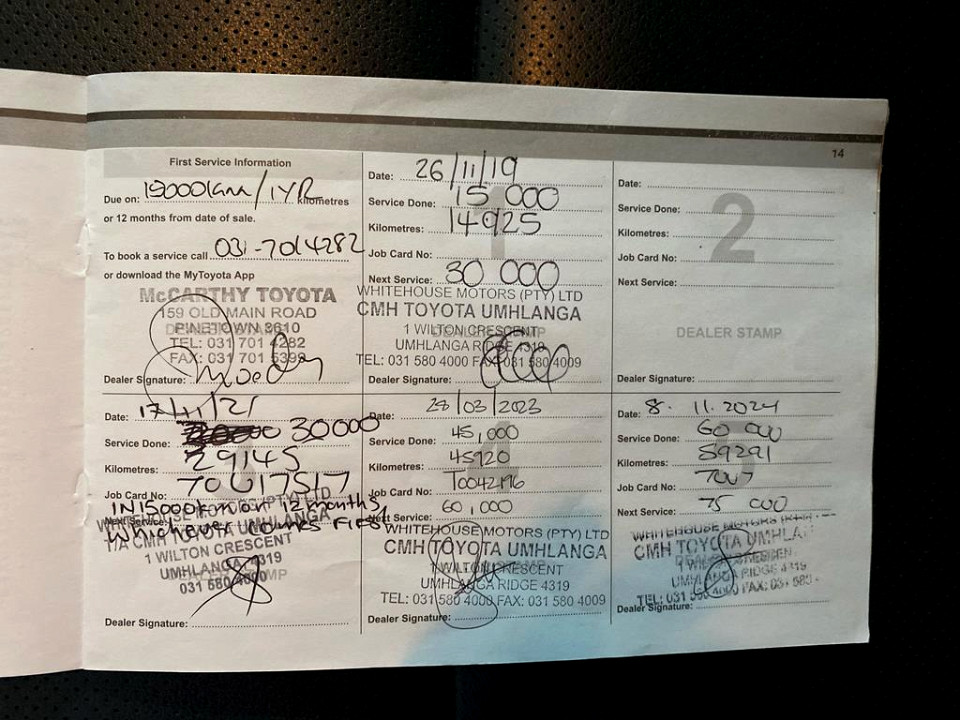 14
First Service Information
Due on: 15000km/1YR kilometres
or 12 months from date of sale.
To book a service call 031-7014282
or download the MyToyota App
McCARTHY TOYOTA
159 OLD MAIN ROAD
PINETOWN 3610
TEL: 031 701 4282
FAX: 031 701 5399
Dealer Signature:
1
Date: 26/11/19
Service Done: 15 000
Kilometres: 14925
Job Card No:
Next Service: 30 000
WHITEHOUSE MOTORS (PTY) LTD
CMH TOYOTA UMHLANGA
1 WILTON CRESCENT
UMHLANGA RIDGE 4319
TEL: 031 580 4000 FAX: 031 580 4009
Dealer Signature:
2
Date:
Service Done:
Kilometres:
Job Card No:
Next Service:
DEALER STAMP
Dealer Signature:
Date: 17/11/21
Service Done: 30000
Kilometres: 29145
Job Card No: 70017517
IN 15000km or 12 months
Next Service: Whichever comes First
WHITEHOUSE MOTORS (PTY) LTD
T/A CMH TOYOTA UMHLANGA
1 WILTON CRESCENT
UMHLANGA 4319
031 580 4000
Dealer Signature:
Date: 28/03/2023
Service Done: 45,000
Kilometres: 45920
Job Card No:
Next Service: 60,000
WHITEHOUSE MOTORS (PTY) LTD
CMH TOYOTA UMHLANGA
1 WILTON CRESCENT
UMHLANGA RIDGE 4319
TEL: 031 580 4000 FAX: 031 580 4009
Dealer Signature:
Date: 8. 11. 2024
Service Done: 60 000
Kilometres: 59291
Job Card No:
Next Service: 75 000
WHITEHOUSE MOTORS
CMH TOYOTA UMHLA
1 WILTON CRESCEN
UMHLANGA RIDGE 4319
TEL: 031 580 4000 FAX: 031 580
Dealer Signature: